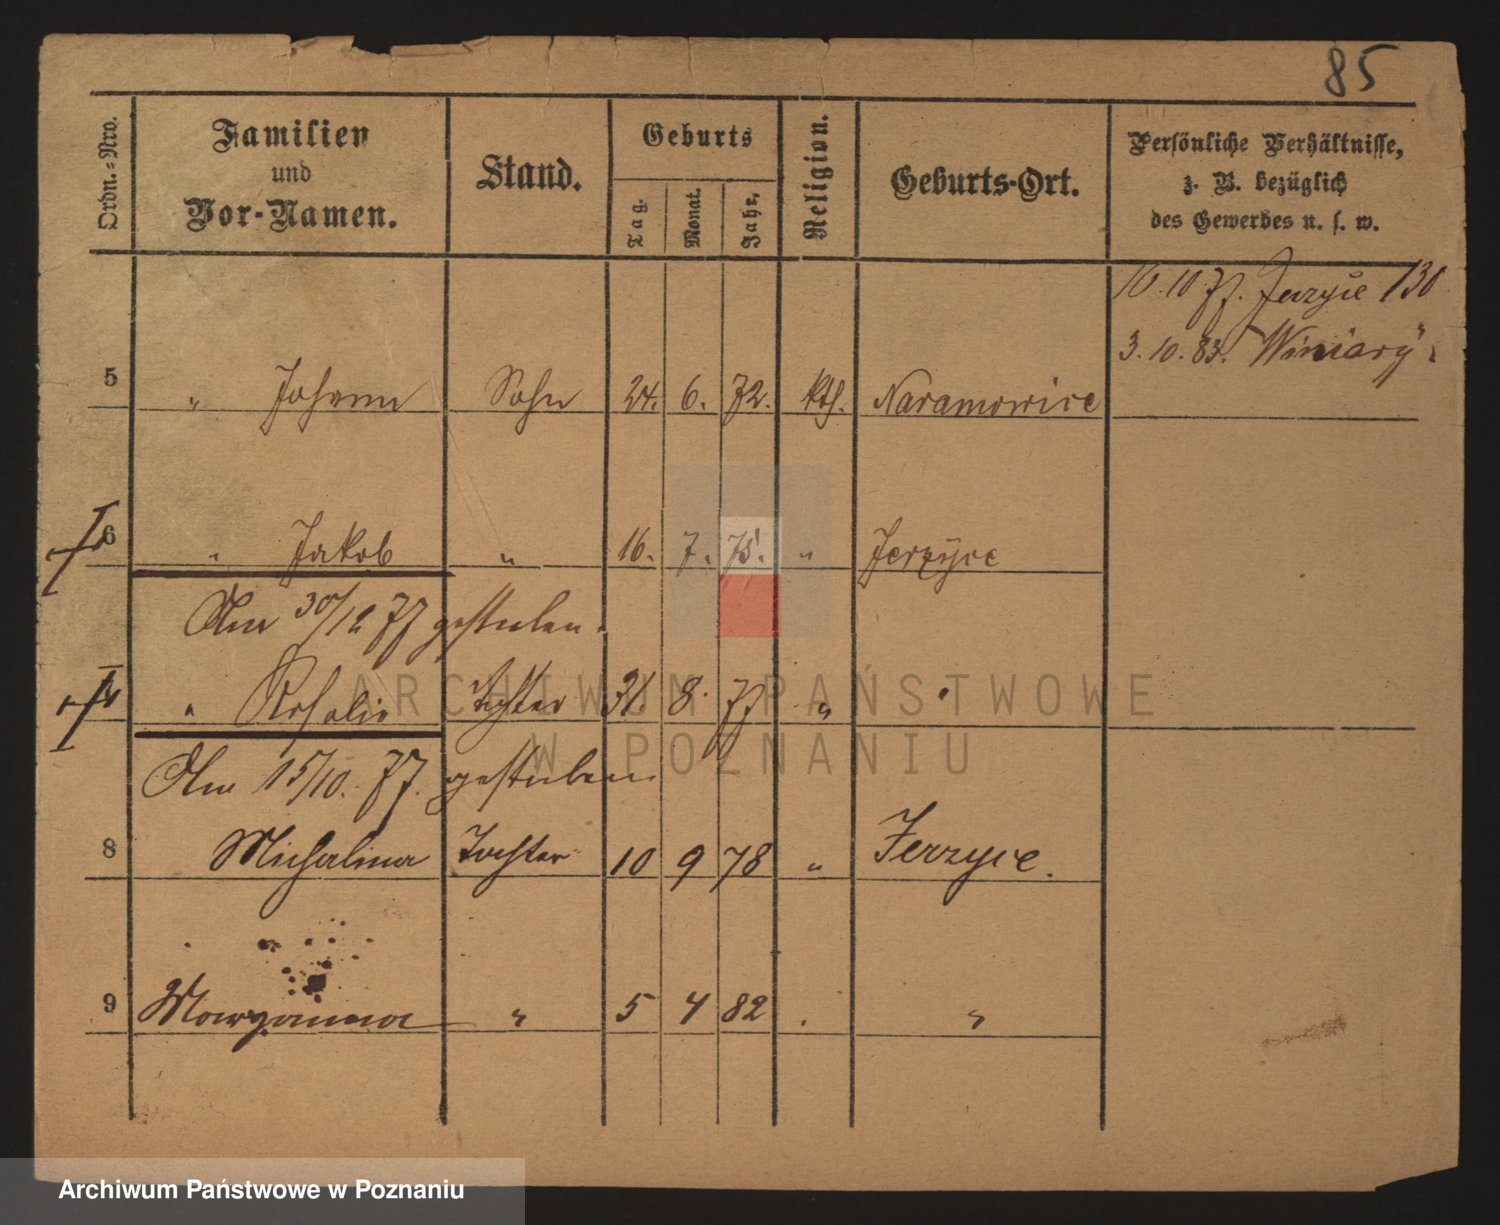 85
Ordn.=Nro.
Familien
und
Vor-Namen.
Stand.
Geburts
Tag.
Monat.
Jahr,
Religion.
Geburts-Ort.
Persönliche Verhältnisse,
z. B. bezüglich
des Gewerbes u. s. w.
10.10.77. Jerzyce 130
3.10.83. Winiary
5 " Johann Sohn 24. 6. 72. kth. Naramowice
6 " Jakob " 16. 7. 75. " Jerzyce
Am 30/12 77 gestorben.
" Rosalie Tochter 31. 8. 77 " "
Am 15/10. 77. gestorben
8 Michalina Tochter 10 9 78 " Jerzyce.
9 Maryanna " 5 4 82 . "
ARCHIWUM PAŃSTWOWE
W POZNANIU
Archiwum Państwowe w Poznaniu